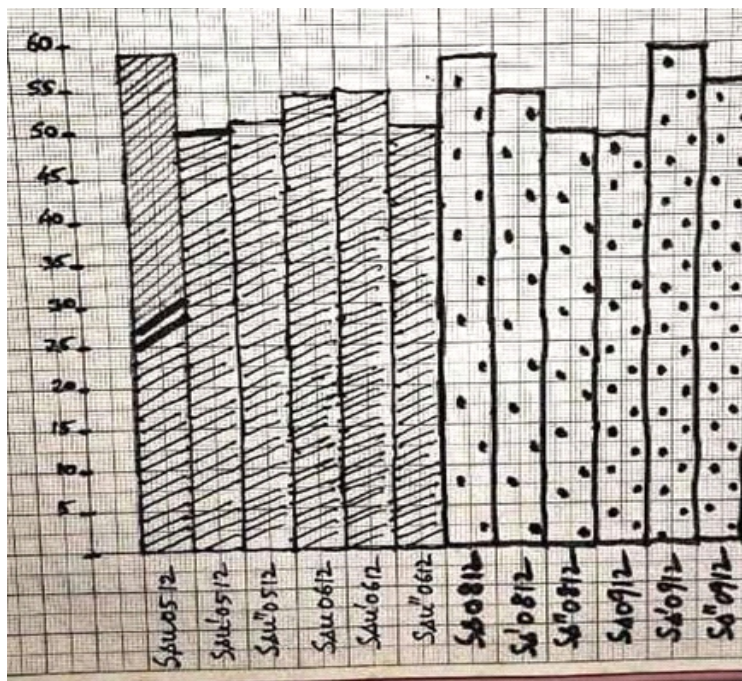 60
55
50
45
40
35
30
25
20
15
10
5
Sau0512
Sau'0512
Sau"0512
Sau0612
Sau'0612
Sau"0612
Sa0812
Sa'0812
Sa"0812
Sa0912
Sa'0912
Sa"0912